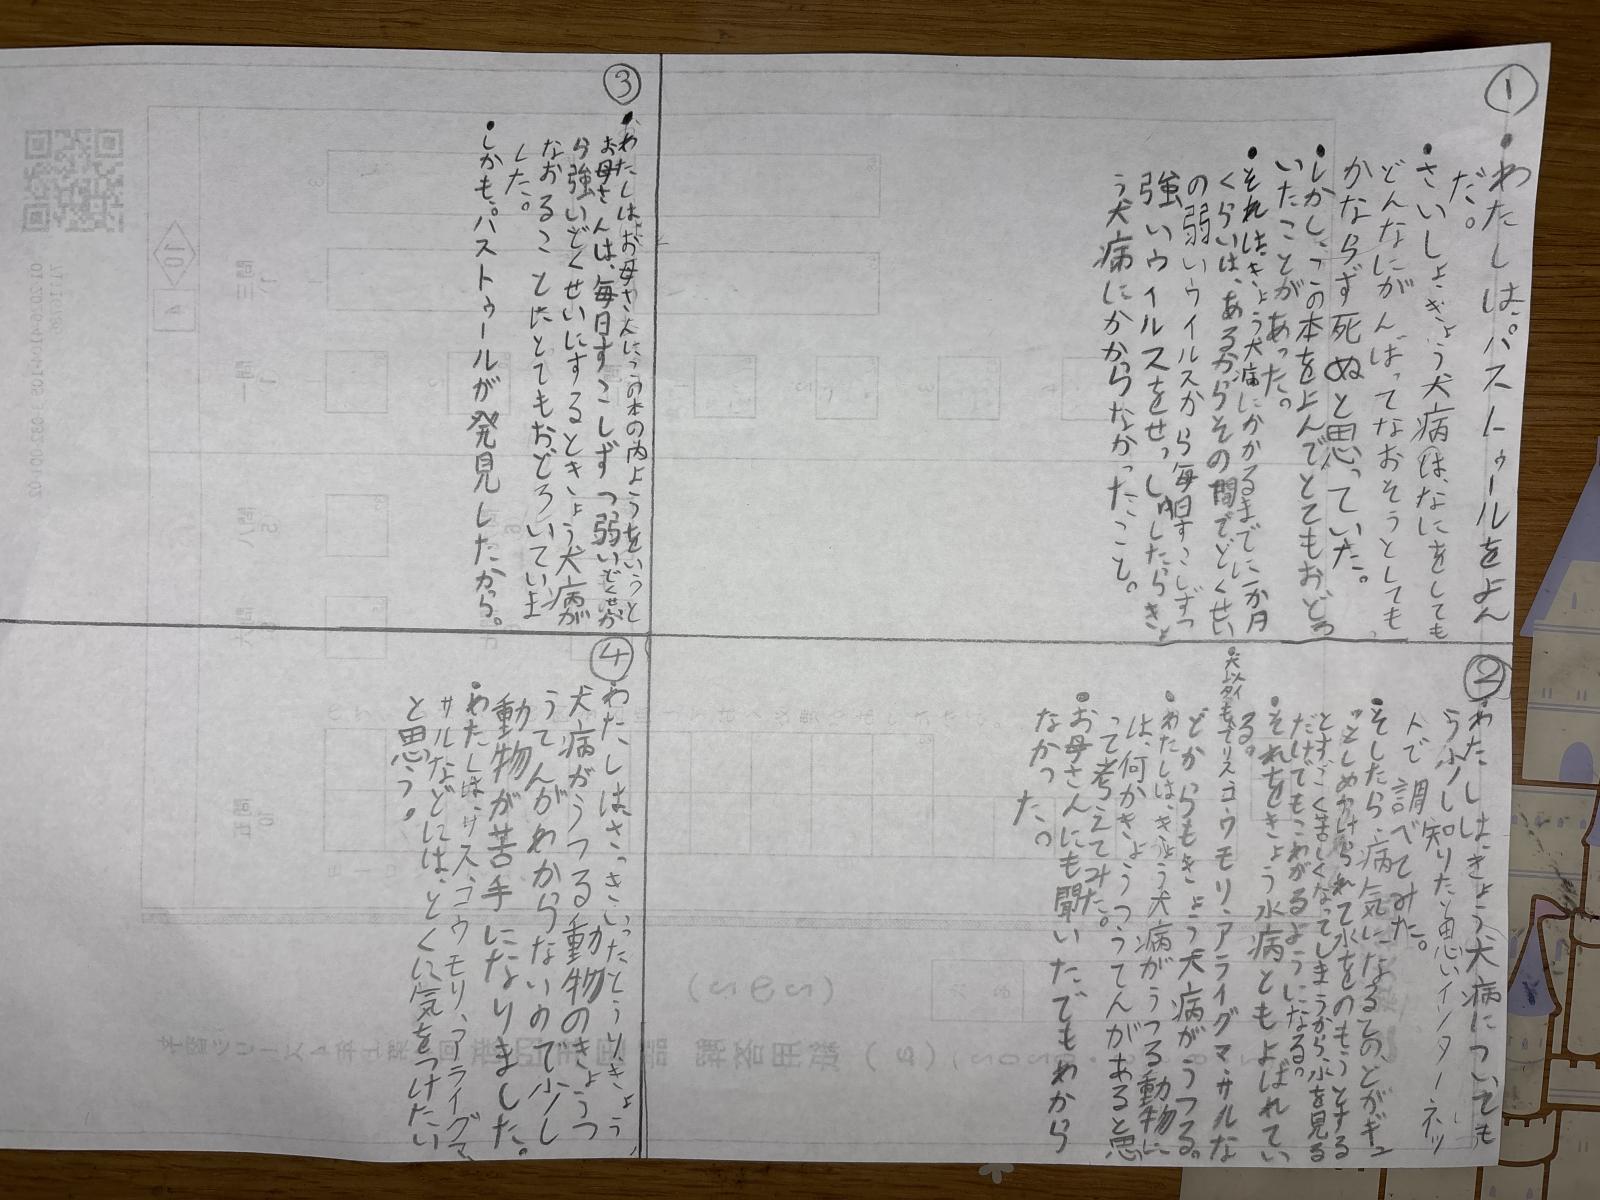 ①
・わたしは、パストゥールをよん
だ。
・さいしょきょう犬病は、なにをしても
どんなにがんばってなおそうとしても
かならず死ぬと思っていた。
・しかし、この本をよんでとてもおどろ
いたことがあった。
・それは、きょう犬病にかかるまでに一か月
くらいは、あるからその間でどくせい
の弱いウイルスから毎日すこしずつ
強いウイルスをせっしゅしたらきょ
う犬病にかからなかったこと。
②
・わたしはきょう犬病についても
う少し知りたい思いインターネッ
トで調べてみた。
・そしたら、病気になるとのどがギュ
っとしめつけられて水をのもうとする
とすごく苦しくなってしまうから、水を見る
だけでもこわがるようになる。
・それをきょう水病ともよばれてい
る。
・犬イタイもリスコウモリ、アライグマサルな
どからもきょう犬病がうつる。
・わたしは、きょう犬病がうつる動物に
は、何かきょうつうてんがあると思
って考えてみた。
・お母さんにも聞いたでもわから
なかった。
③
・わたしはお母さんにこの本の内ようをいうと
お母さんは、毎日すこしずつ弱いどくせいか
ら強いどくせいにするときょう犬病が
なおることにとてもおどろいていま
した。
・しかも、パストゥールが発見したから。
④
・わたしはさっきいったとうり、きょう
犬病がうつる動物のきょうつ
うてんがわからないので少し
動物が苦手になりました。
・わたしは、リス、コウモリ、アライグマ
サルなどには、とくに気をつけたい
と思う。